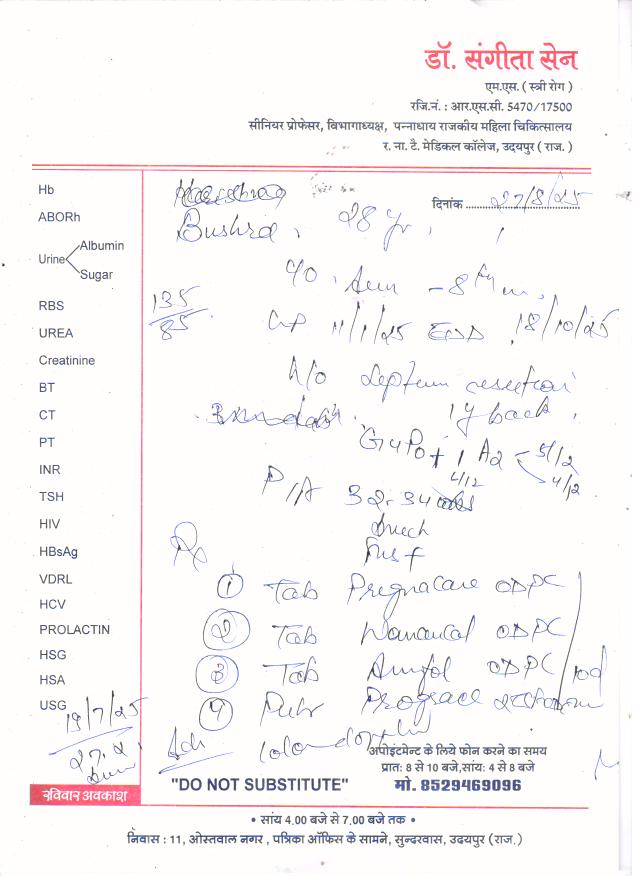 डॉ. संगीता सेन
एम.एस. ( स्त्री रोग )
रजि.नं. : आर.एस.सी. 5470/17500
सीनियर प्रोफेसर, विभागाध्यक्ष, पन्नाधाय राजकीय महिला चिकित्सालय
र. ना. टै. मेडिकल कॉलेज, उदयपुर ( राज. )
Hb
दिनांक 27/8/25
ABORh
Bushra, 28 yr,
Urine Albumin
Sugar
8
RBS 135/85
11/1/25 EDD 18/10/25
UREA
Creatinine
H/o septum resection
BT
1 y back,
CT
PT
G4P0+1 A2 5/12
4/12 4/12
INR
P/A 32-34
TSH
HIV
HBsAg
Rx
VDRL
① Tab Pregnacare OD PC
HCV
PROLACTIN
② Tab OD PC
HSG
HSA
③ Tab OD PC
USG 19/7/25
④
Adv Color doppler
अपोइंटमेन्ट के लिये फोन करने का समय
प्रात: 8 से 10 बजे,सांय: 4 से 8 बजे
"DO NOT SUBSTITUTE" मो. 8529469096
रविवार अवकाश
• सांय 4.00 बजे से 7.00 बजे तक •
निवास : 11, ओस्तवाल नगर , पत्रिका ऑफिस के सामने, सुन्दरवास, उदयपुर ( राज.)